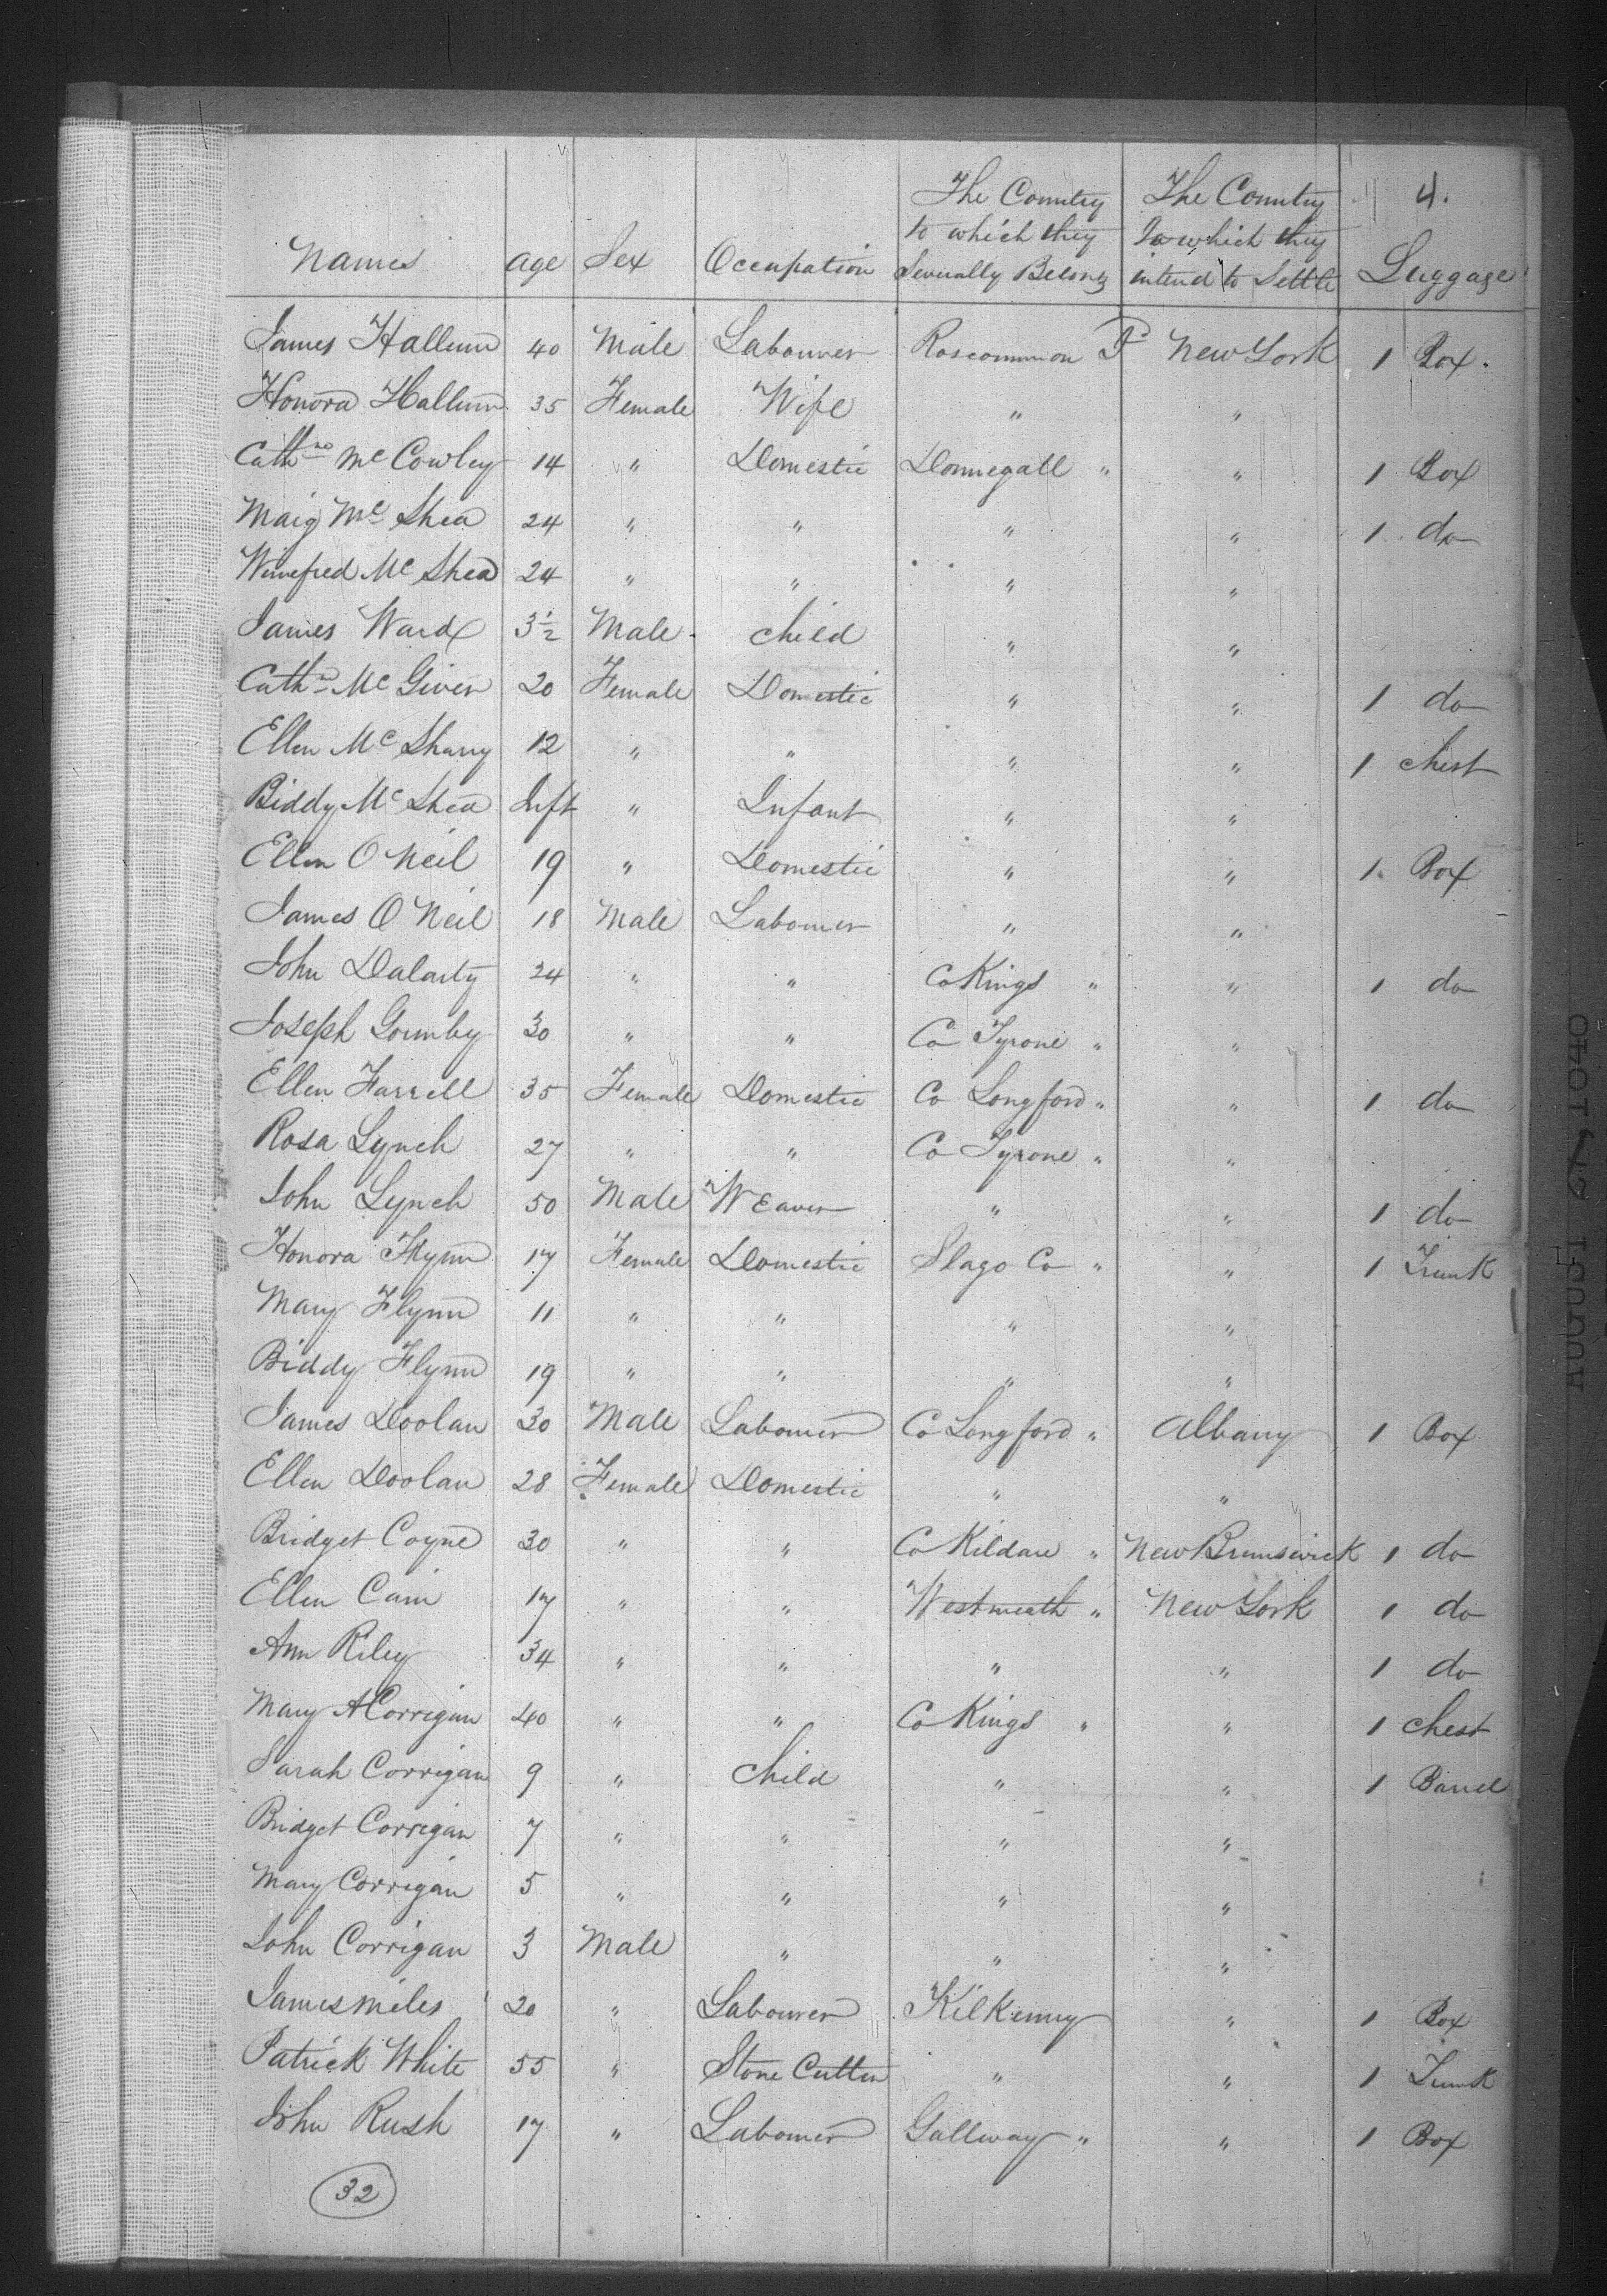 4.
Names age Sex Occupation The Country to which they Severally Belong The Country To which they intend to Settle Luggage
James Hallum 40 Male Labourer Roscommon P New York 1 Box.
Honora Hallum 35 Female Wife " "
Cathne Mc Cowley 14 " Domestic Donnegall " " 1 Box
Maig Mc Shea 24 " " " " 1 do
Winefred Mc Shea 24 " " " "
James Ward 3½ Male Child " "
Cathn Mc Giver 20 Female Domestic " " 1 do
Ellen Mc Sharry 12 " " " " 1 Chest
Biddy Mc Shea Inft " Infant " "
Ellen O Neil 19 " Domestic " " 1 Box
James O Neil 18 Male Labourer " "
John Dalarty 24 " " Co Kings " " 1 do
Joseph Gormby 30 " " Co Tyrone " "
Ellen Farrell 35 Female Domestic Co Longford " " 1 do
Rosa Lynch 27 " " Co Tyrone " "
John Lynch 50 Male WEaver " " 1 do
Honora Flynn 17 Female Domestic Slago Co " " 1 Trunk
Mary Flynn 11 " " " "
Biddy Flynn 19 " " " "
James Doolan 30 Male Labourer Co Longford " Albany 1 Box
Ellen Doolan 28 Female Domestic " "
Bridget Coyne 30 " " Co Kildare " New Brunswick 1 do
Ellen Cain 17 " " Westmeath " New York 1 do
Ann Riley 34 " " " " 1 do
Mary A Corrigan 40 " " Co Kings " " 1 Chest
Sarah Corrigan 9 " Child " " 1 Barrel
Bridget Corrigan 7 " " " "
Mary Corrigan 5 " " " "
John Corrigan 3 Male " " "
James Miles 20 " Labourer Kilkenny " 1 Box
Patrick White 55 " Stone Cutter " " 1 Trunk
John Rush 17 " Labourer Gallway " " 1 Box
32